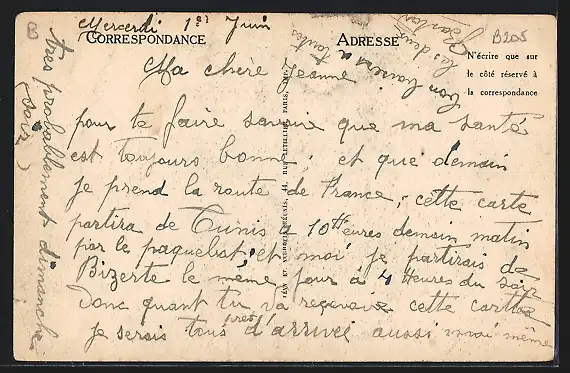 Mercredi 1er Juin
CORRESPONDANCE
ADRESSE
N'écrire que sur
le côté réservé à
la correspondance
B
B205
Ma chère Jeanne
pour te faire savoire que ma santé
est toujours bonne, et que demain
je prend la route de France, cette carte
partira de Tunis a 10 Heures demain matin
par le paquebot, et moi je partirais de
Bizerte le même jour à 4 Heures du soir
Donc quant tu va recevoire cette carte
je serais tous près d'arrivée aussi moi même
très probablement dimanche
soir)
toutes
les deux
LÉVY ET NEURDEIN RÉUNIS, 44, RUE LETELLIER, PARIS, IMP.